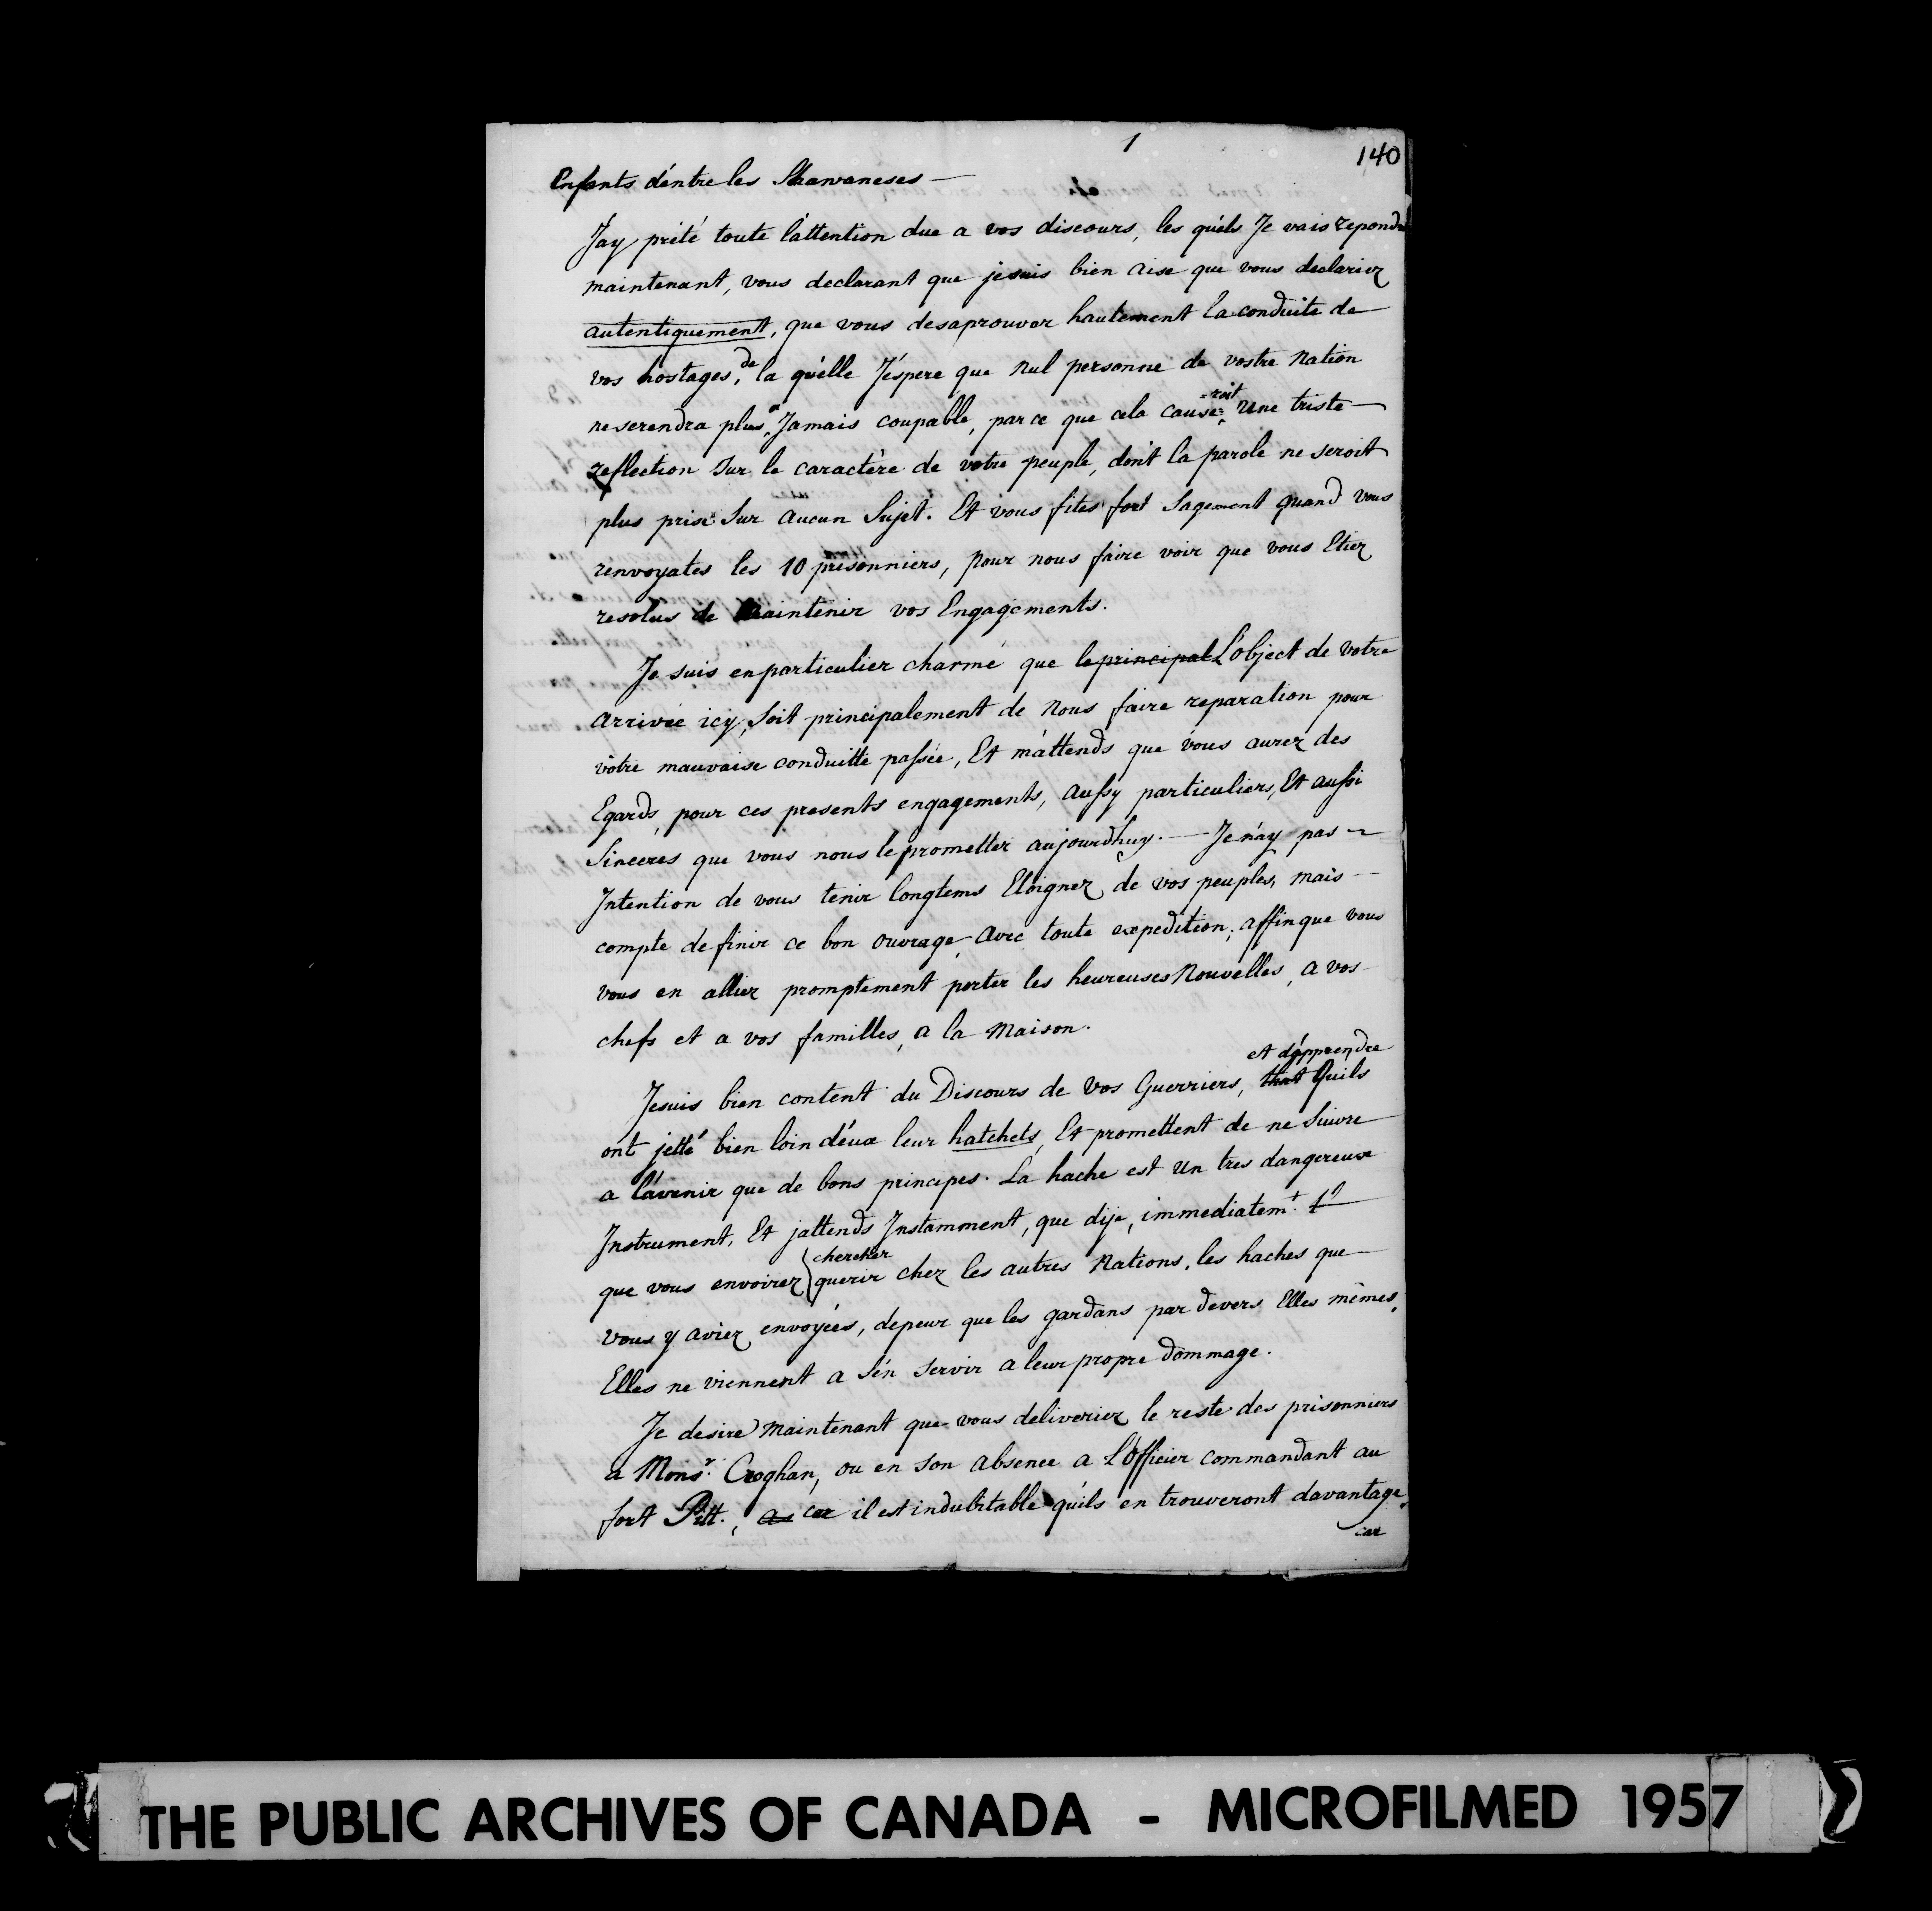 1
140
Enfants d'entre les Shawaneses —
J'ay prété toute l'attention due a vos discours, les quels Je vais repondre
maintenant, vous declarant que je suis bien aise que vous declariez
autentiquement, que vous desaprouvez hautement la conduite de
vos hostages, de la qu'elle J'éspere que Nul personne de vostre Nation
ne serendra plus a Jamais coupable, par ce que cela cause=roit Une triste —
reflection sur le caractère de votre peuple, dont la parole ne seroit
plus prise sur aucun Sujet. Et vous fites fort Sagement quand vous
renvoyates les 10 prisonniers, pour nous faire voir que vous Etiez
resolus de Maintenir vos Engagements.
Je suis en particulier charmé que le principal L'object de votre
arrivée icy, soit principalement de Nous faire reparation pour
vôtre mauvaise conduitte passée, Et m'attends que vous aurez des
Egards, pour ces presents engagements, aussy particuliers, Et aussi
Sinceres que vous nous le promettez aujourdhuy. — Je n'ay pas
Intention de vous tenir longtems Eloignez de vos peuples, mais —
compte de finir ce bon ouvrage avec toute expedition, affin que vous
vous en alliez promptement porter les heureuses Nouvelles, a vos
chefs et a vos familles, a la Maison.
et d'apprendre
Je suis bien content du Discours de vos Guerriers, that Quils
ont jetté bien loin d'eux leur hatchets, Et promettent de ne Suivre
a l'avenir que de bons principes. La hache est Un tres dangereux
Instrument, Et jattends Instamment, que dije, immediatemt.
chercher
que vous envoirez querir chez les autres Nations, les haches que —
vous y aviez envoyées, de peur que les gardans par devers Elles mêmes,
Elles ne viennent a s'én servir a leur propre dommage.
Je desire maintenant que vous deliveriez le reste des prisonniers
a Monsr. Croghan, ou en son absence a L'Officier commandant au
fort Pitt., as car il est indubitable qu'ils en trouveront davantage,
car
THE PUBLIC ARCHIVES OF CANADA - MICROFILMED 1957